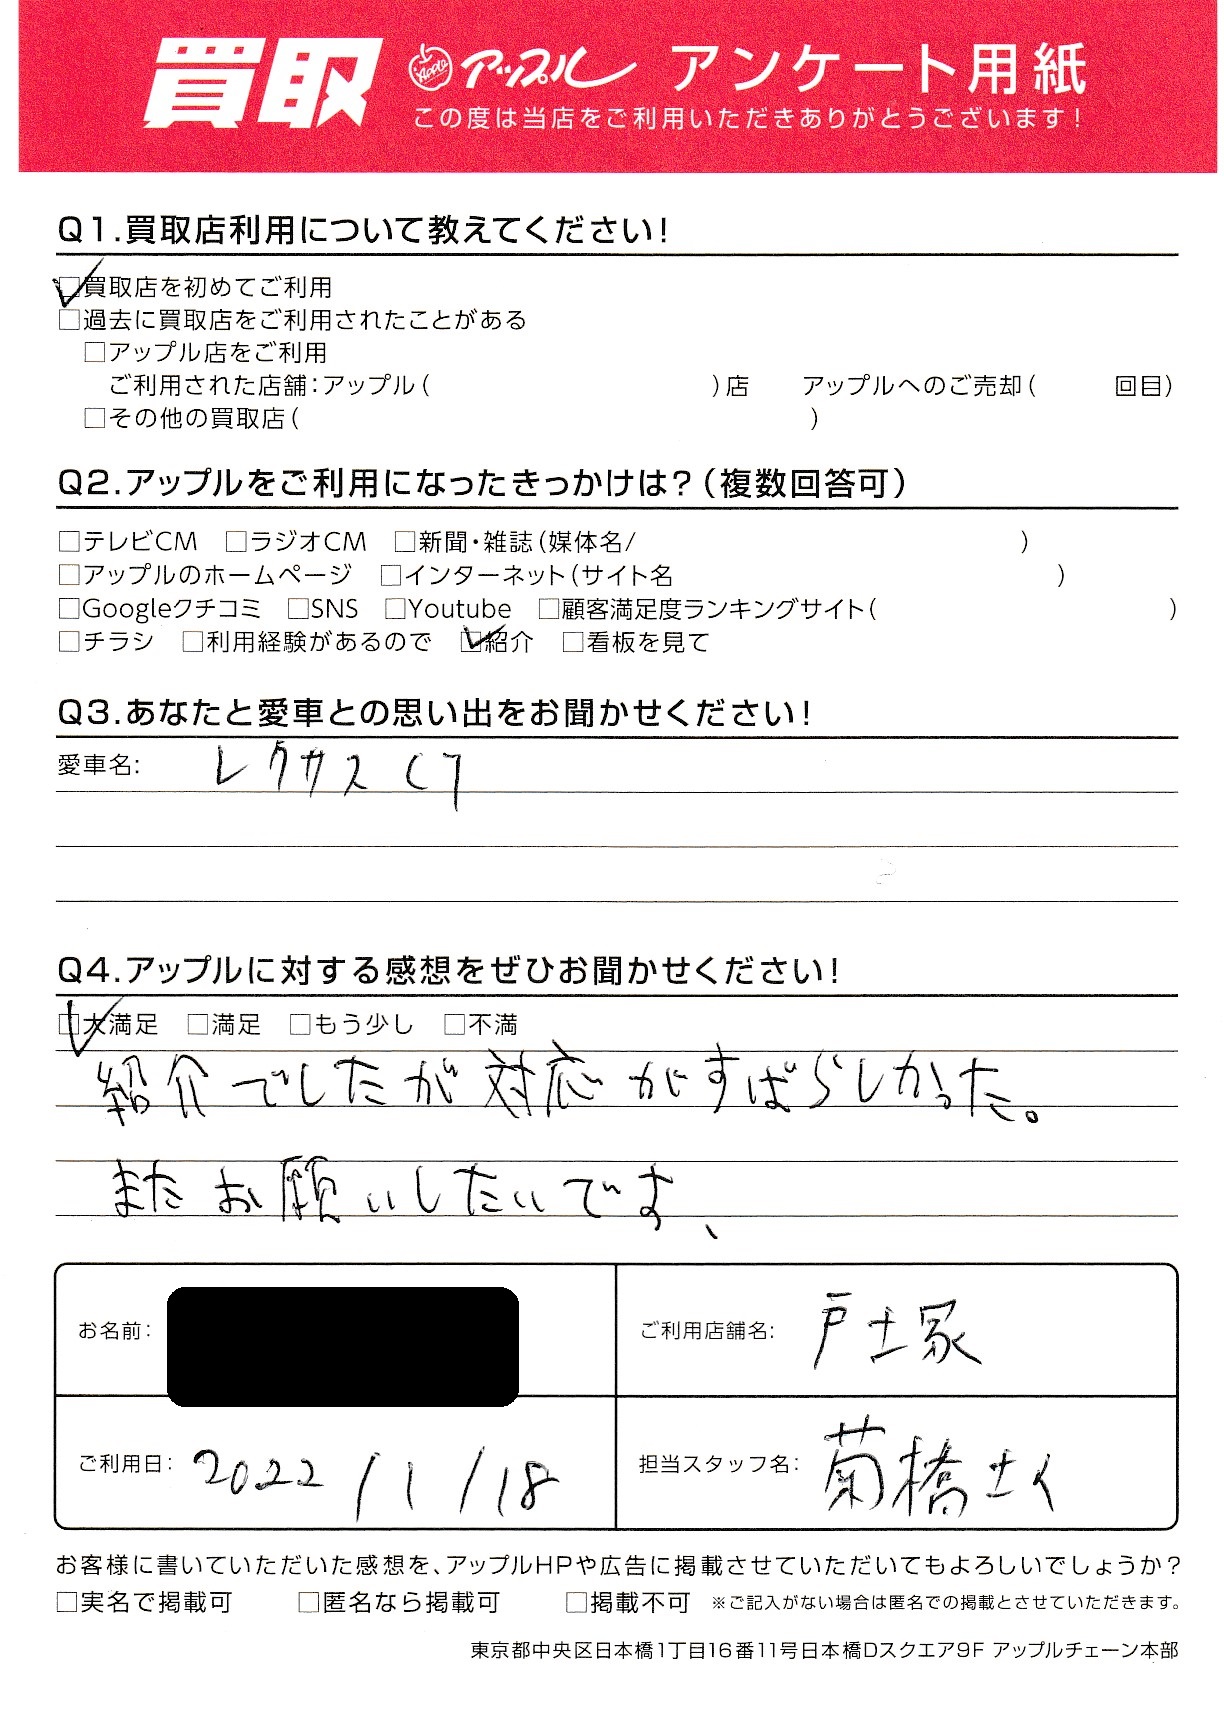 買取 Apple アップル アンケート用紙
この度は当店をご利用いただきありがとうございます!
Q1.買取店利用について教えてください!
☑買取店を初めてご利用
□過去に買取店をご利用されたことがある
□アップル店をご利用
ご利用された店舗:アップル( )店 アップルへのご売却( 回目)
□その他の買取店( )
Q2.アップルをご利用になったきっかけは?(複数回答可)
□テレビCM □ラジオCM □新聞・雑誌(媒体名/ )
□アップルのホームページ □インターネット(サイト名 )
□Googleクチコミ □SNS □Youtube □顧客満足度ランキングサイト( )
□チラシ □利用経験があるので ☑紹介 □看板を見て
Q3.あなたと愛車との思い出をお聞かせください!
愛車名: レクサス CT
Q4.アップルに対する感想をぜひお聞かせください!
☑大満足 □満足 □もう少し □不満
紹介でしたが対応がすばらしかった。
またお願いしたいです、
お名前: ご利用店舗名: 戸士家
ご利用日: 2022/1/18 担当スタッフ名: 菊橋さん
お客様に書いていただいた感想を、アップルHPや広告に掲載させていただいてもよろしいでしょうか?
□実名で掲載可 □匿名なら掲載可 □掲載不可 ※ご記入がない場合は匿名での掲載とさせていただきます。
東京都中央区日本橋1丁目16番11号日本橋Dスクエア9F アップルチェーン本部